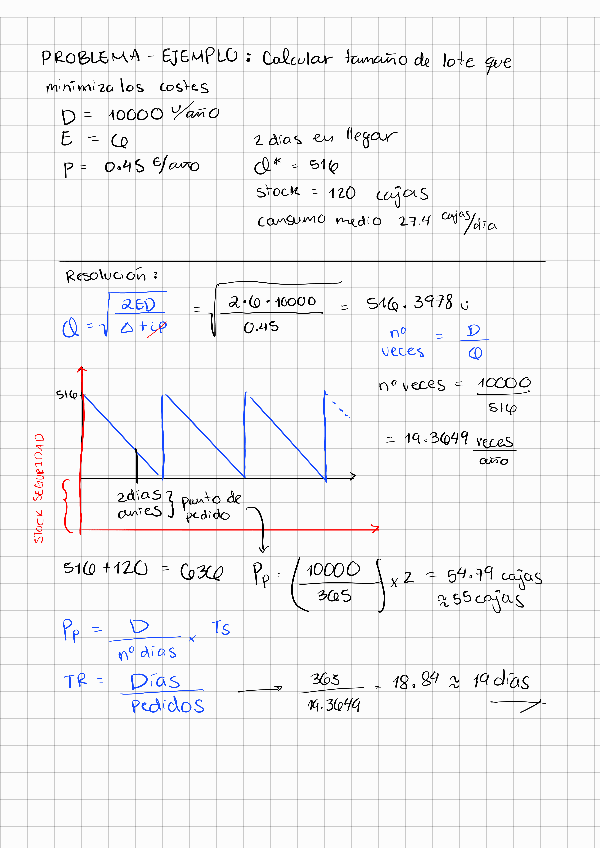 PROBLEMA - EJEMPLO: Calcular tamaño de lote que
minimiza los costes
D = 10000 u/año
E = 6
2 días en llegar
P = 0.45 E/año
Q* = 516
stock = 120 cajas
consumo medio 27.4 cajas/día
Resolución:
Q = √(2ED / Δ + ip) = √(2·6·10000 / 0.45) = 516.3978 u
nº veces = D / Q
516
nº veces = 10000 / 516
= 19.3649 veces / año
STOCK SEGURIDAD
2 días antes } punto de pedido
516 + 120 = 636
Pp: (10000 / 365) x 2 = 54.79 cajas
≈ 55 cajas
Pp = D / nº días x Ts
TR = Días / Pedidos → 365 / 19.3649 = 18.84 ≈ 19 días